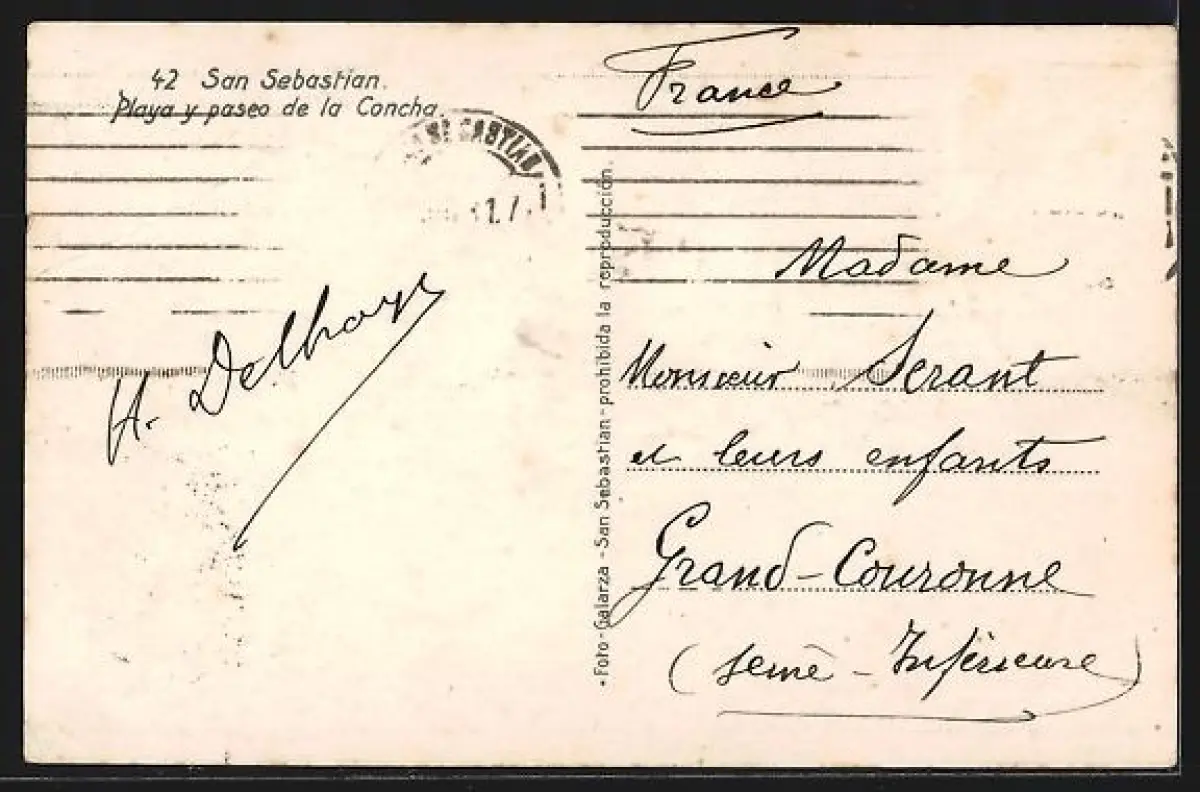 42 San Sebastián.
Playa y paseo de la Concha.
France
SEBASTIAN
H. Delhaye
Madame
Monsieur Serant
et leurs enfants
Grand-Couronne
(Seine-Inférieure)
Foto-Galarza - San Sebastian - prohibida la reproducción.